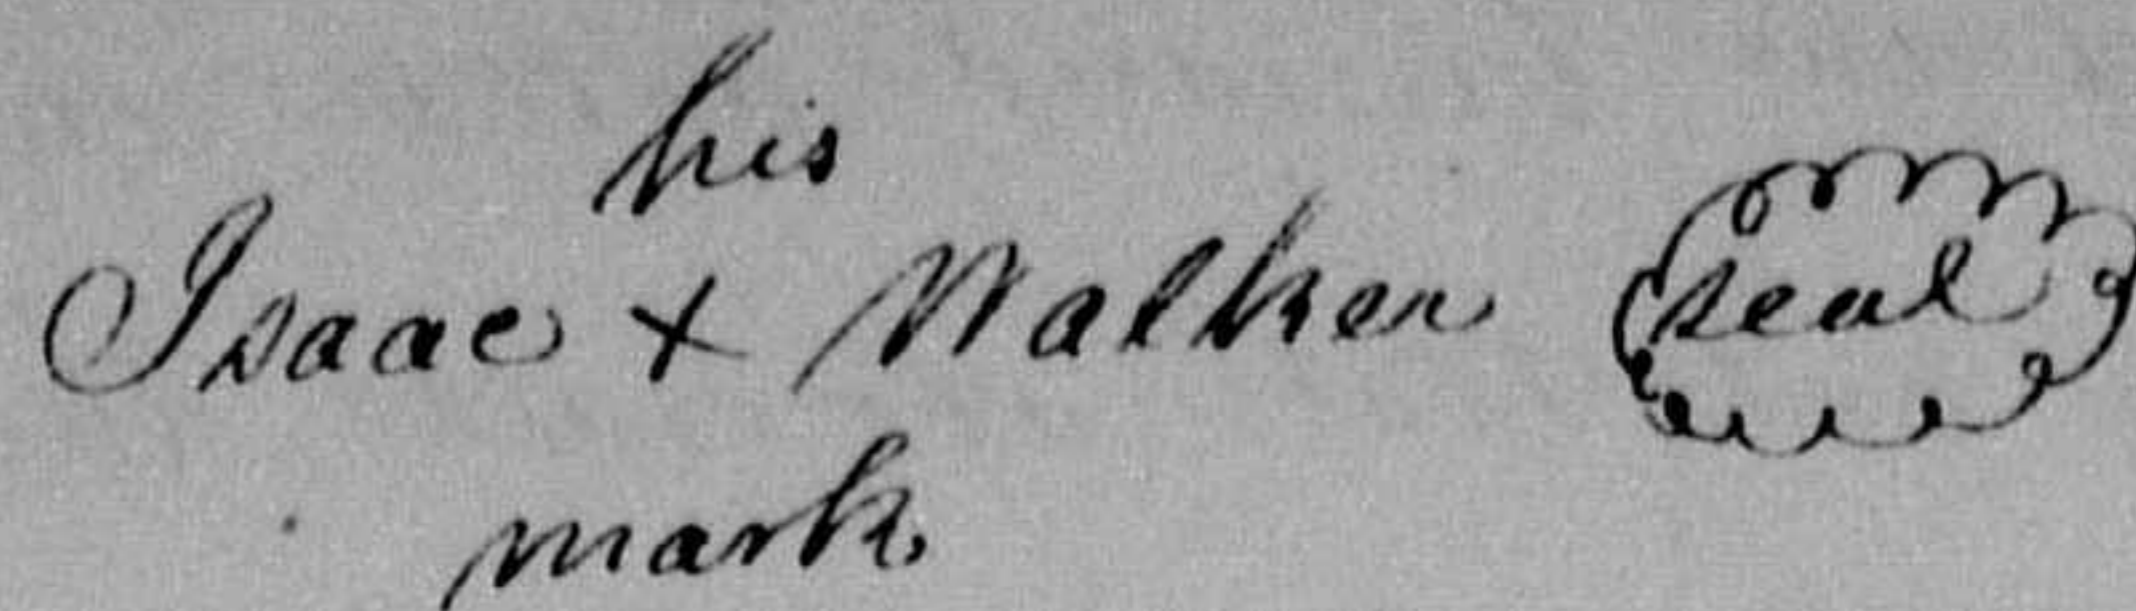 his
Isaac + Walker seal
mark